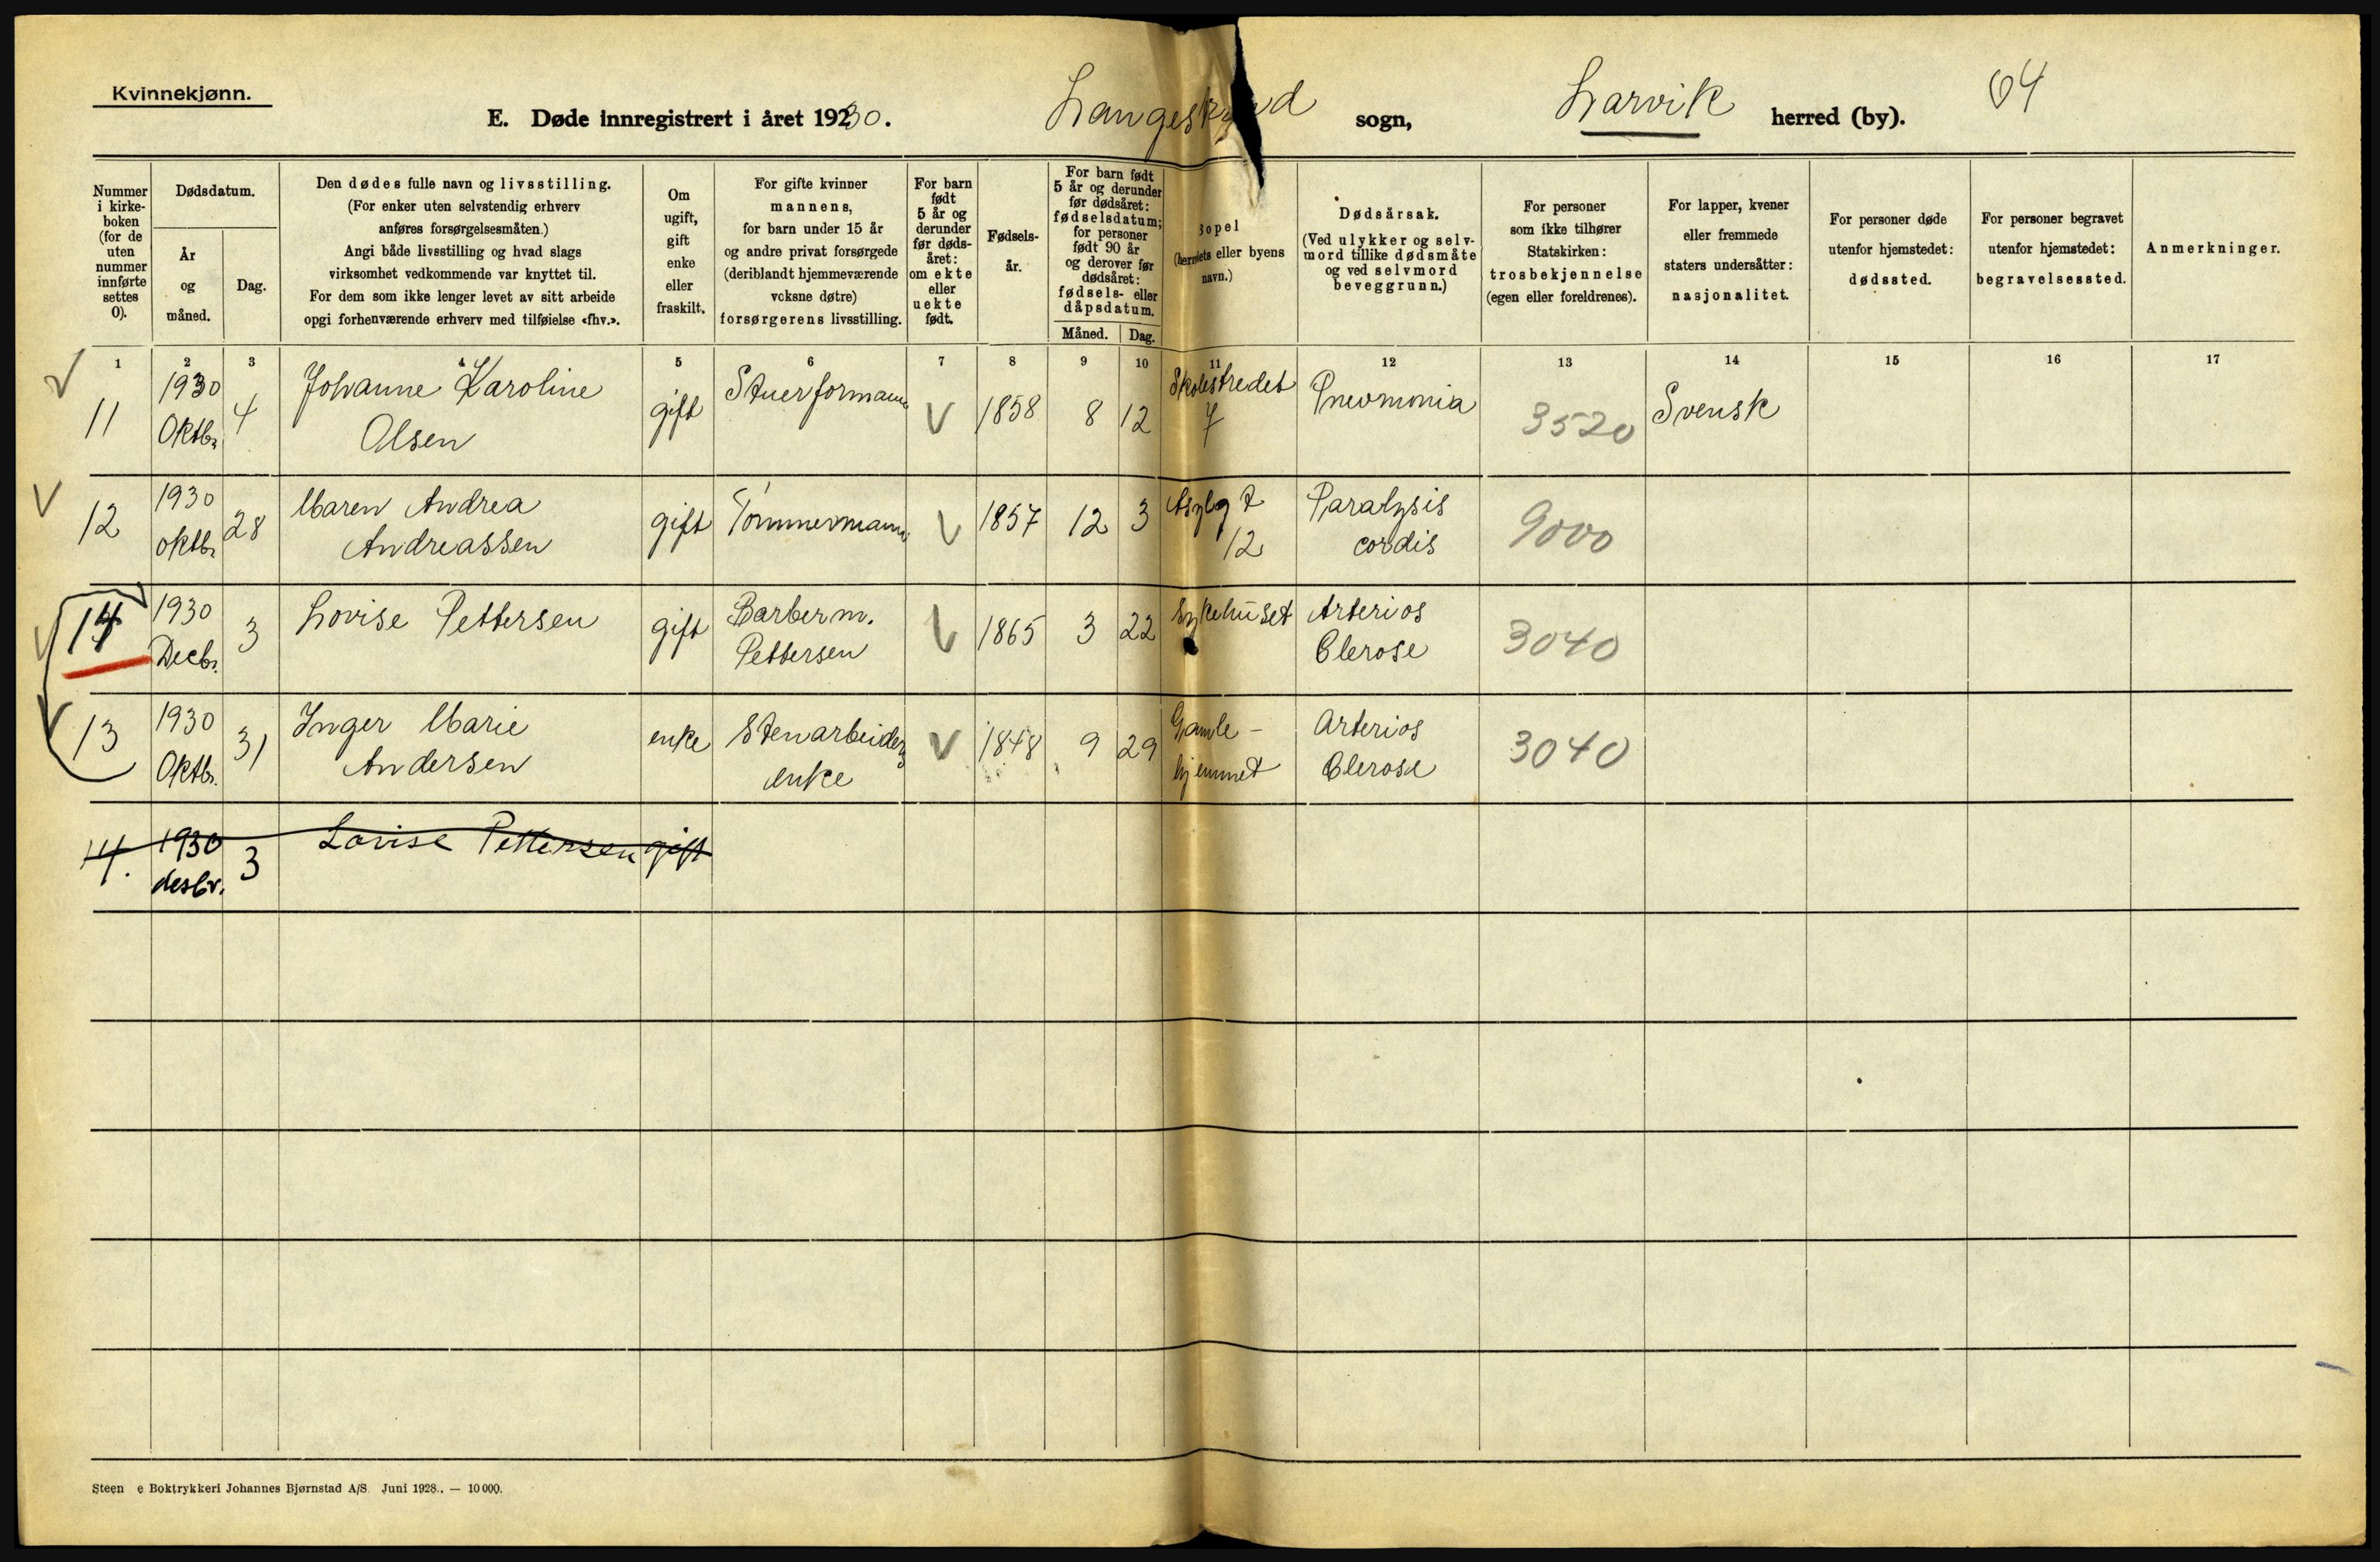 Kvinnekjønn.
E. Døde innregistrert i året 1930. Langestrand sogn, Larvik herred (by). 64
Nummer i kirke-boken (for de uten nummer innførte settes 0).
Dødsdatum.
År og måned.
Dag.
Den dødes fulle navn og livsstilling.
(For enker uten selvstendig erhverv
anføres forsørgelsesmåten.)
Angi både livsstilling og hvad slags
virksomhet vedkommende var knyttet til.
For dem som ikke lenger levet av sitt arbeide
opgi forhenværende erhverv med tilføielse «fhv.».
Om ugift, gift enke eller fraskilt.
For gifte kvinner
mannens,
for barn under 15 år
og andre privat forsørgede
(deriblandt hjemmeværende
voksne døtre)
forsørgerens livsstilling.
For barn født 5 år og derunder før døds-året: om ekte eller uekte født.
Fødsels-år.
For barn født
5 år og derunder
før dødsåret:
fødselsdatum;
for personer
født 90 år
og derover før
dødsåret:
fødsels- eller
dåpsdatum.
Måned. Dag.
Bopel
(herredets eller byens
navn.)
Dødsårsak.
(Ved ulykker og selv-
mord tillike dødsmåte
og ved selvmord
beveggrunn.)
For personer
som ikke tilhører
Statskirken:
trosbekjennelse
(egen eller foreldrenes).
For lapper, kvener
eller fremmede
staters undersåtter:
nasjonalitet.
For personer døde
utenfor hjemstedet:
dødssted.
For personer begravet
utenfor hjemstedet:
begravelsessted.
Anmerkninger.
1 2 3 4 5 6 7 8 9 10 11 12 13 14 15 16 17
11 1930 Oktbr. 4 Johanne Karoline Olsen gift Stuerformann 1858 8 12 Skolestredet 7 Pneumonia 3520 Svensk
12 1930 oktbr. 28 Maren Andrea Andreassen gift Tømmermann 1857 12 3 Asylg t 12 Paralysis cordis 9000
14 1930 Decbr. 3 Lovise Pettersen gift Barber m. Pettersen 1865 3 22 Sykehuset Arterios Clerose 3040
13 1930 Oktbr. 31 Inger Marie Andersen enke Stenarbeiders enke 1848 9 29 Gamle- hjemmet Arterios Clerose 3040
14. 1930 desbr. 3 Lovise Pettersen gift
Steen e Boktrykkeri Johannes Bjørnstad A/S. Juni 1928. — 10 000.